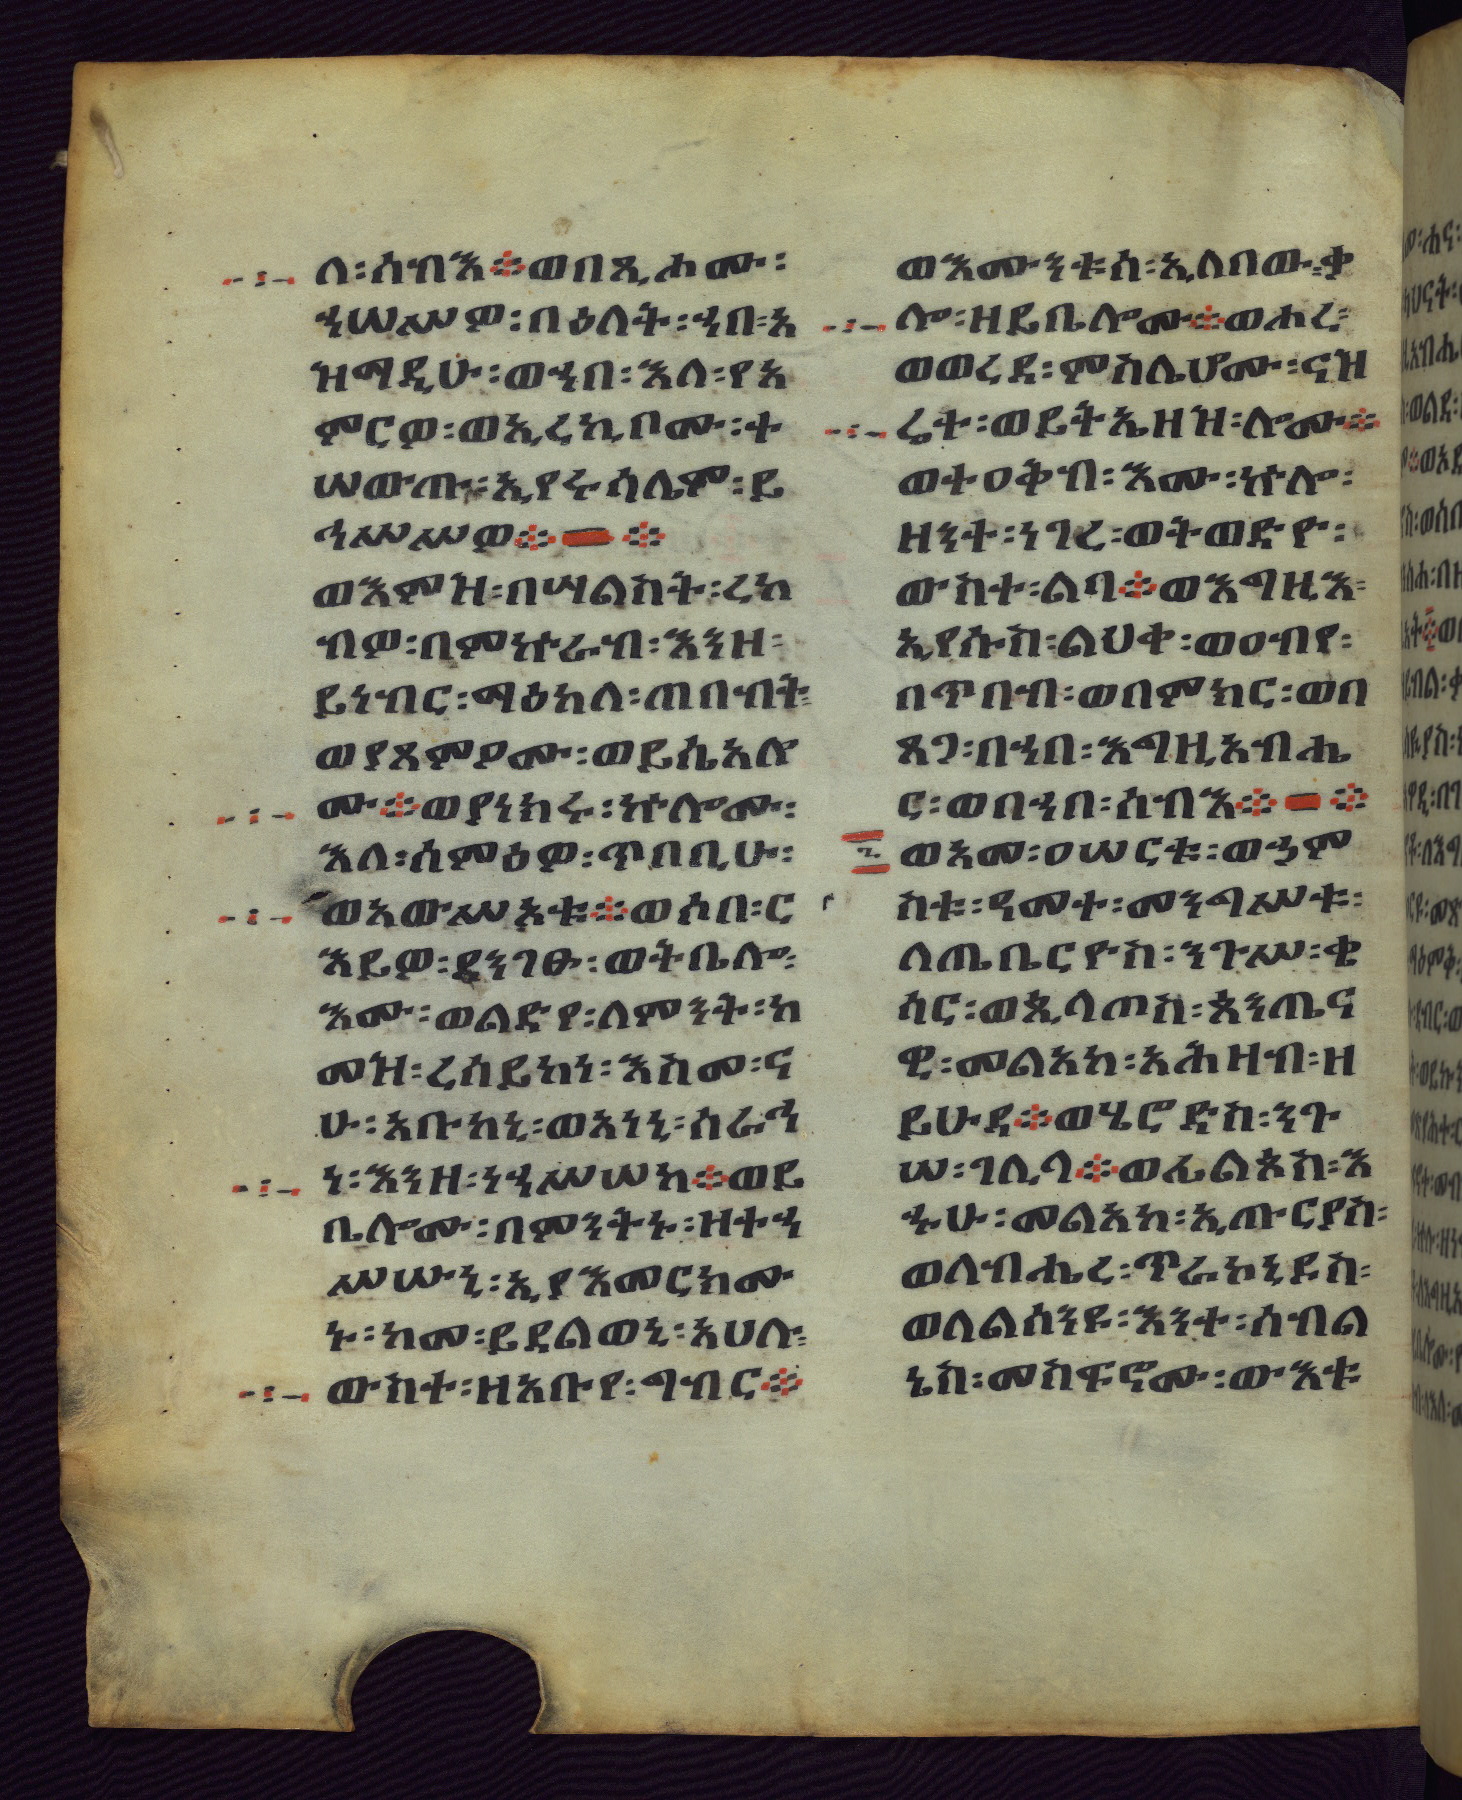 ለ፡ሰብእ፨ወበጺሖሙ፡
ኀሠሥዎ፡በዕለት፡ኀበ፡አ
ዝማዲሁ፡ወኀበ፡እለ፡የአ
ምርዎ፡ወኢረኪቦሙ፡ተ
ሠውጡ፡ኢየሩሳሌም፡ይ
ኅሥሥዎ፨፨
ወእምዝ፡በሣልስት፡ረከ
ብዎ፡በምኵራብ፡እንዘ፡
ይነብር፡ማዕከለ፡ጠበብት፡
ወያጸምዖሙ፡ወይሴአሎ
ሙ፨ወያነክሩ፡ኵሎሙ፡
እለ፡ሰምዕዎ፡ጥበቢሁ፡
ወአውሥአቱ፨ወሶበ፡ር
እይዎ፡ደንገፁ፡ወትቤሎ፡
እሙ፡ወልድየ፡ለምንት፡ከ
መዝ፡ረሰይከነ፡እስመ፡ና
ሁ፡አቡከኒ፡ወአነኒ፡ስራኅ
ነ፡እንዘ፡ነኀሥሠከ፨ወይ
ቤሎሙ፡በምንትኑ፡ዘተኀ
ሥሡኒ፡ኢያእመርክሙ
ኑ፡ከመ፡ይደልወኒ፡አሀሉ፡
ውስተ፡ዘአቡየ፡ግብር፨
ወእሙንቱሰ፡ኢለበዉ፡ቃ
ሎ፡ዘይቤሎሙ፨ወሖረ፡
ወወረደ፡ምስሌሆሙ፡ናዝ
ሬተ፡ወይትኤዘዝ፡ሎሙ፨
ወተዐቅብ፡እሙ፡ኵሎ፡
ዘንተ፡ነገረ፡ወትወድዮ፡
ውስተ፡ልባ፨ወእግዚእ፡
ኢየሱስ፡ልህቀ፡ወዐብየ፡
በጥበብ፡ወበምክር፡ወበ
ጸጋ፡በኀበ፡እግዚአብሔ
ር፡ወበኀበ፡ሰብእ፨፨
ወአመ፡ዐሠርቱ፡ወኃም
ስቱ፡ዓመተ፡መንግሥቱ፡
ለጤቤርዮስ፡ንጉሥ፡ቄ
ሳር፡ወጲላጦስ፡ጰንጤና
ዊ፡መልአከ፡አሕዛብ፡ዘ
ይሁዳ፨ወሄሮድስ፡ንጉ
ሠ፡ገሊላ፨ወፊልጶስ፡እ
ኁሁ፡መልአከ፡ኢጡርያስ፡
ወለብሔረ፡ጥራኮኒዶስ፡
ወለልሳንዩ፡እንተ፡ሳብል
ኒስ፡መስፍኖሙ፡ውእቱ